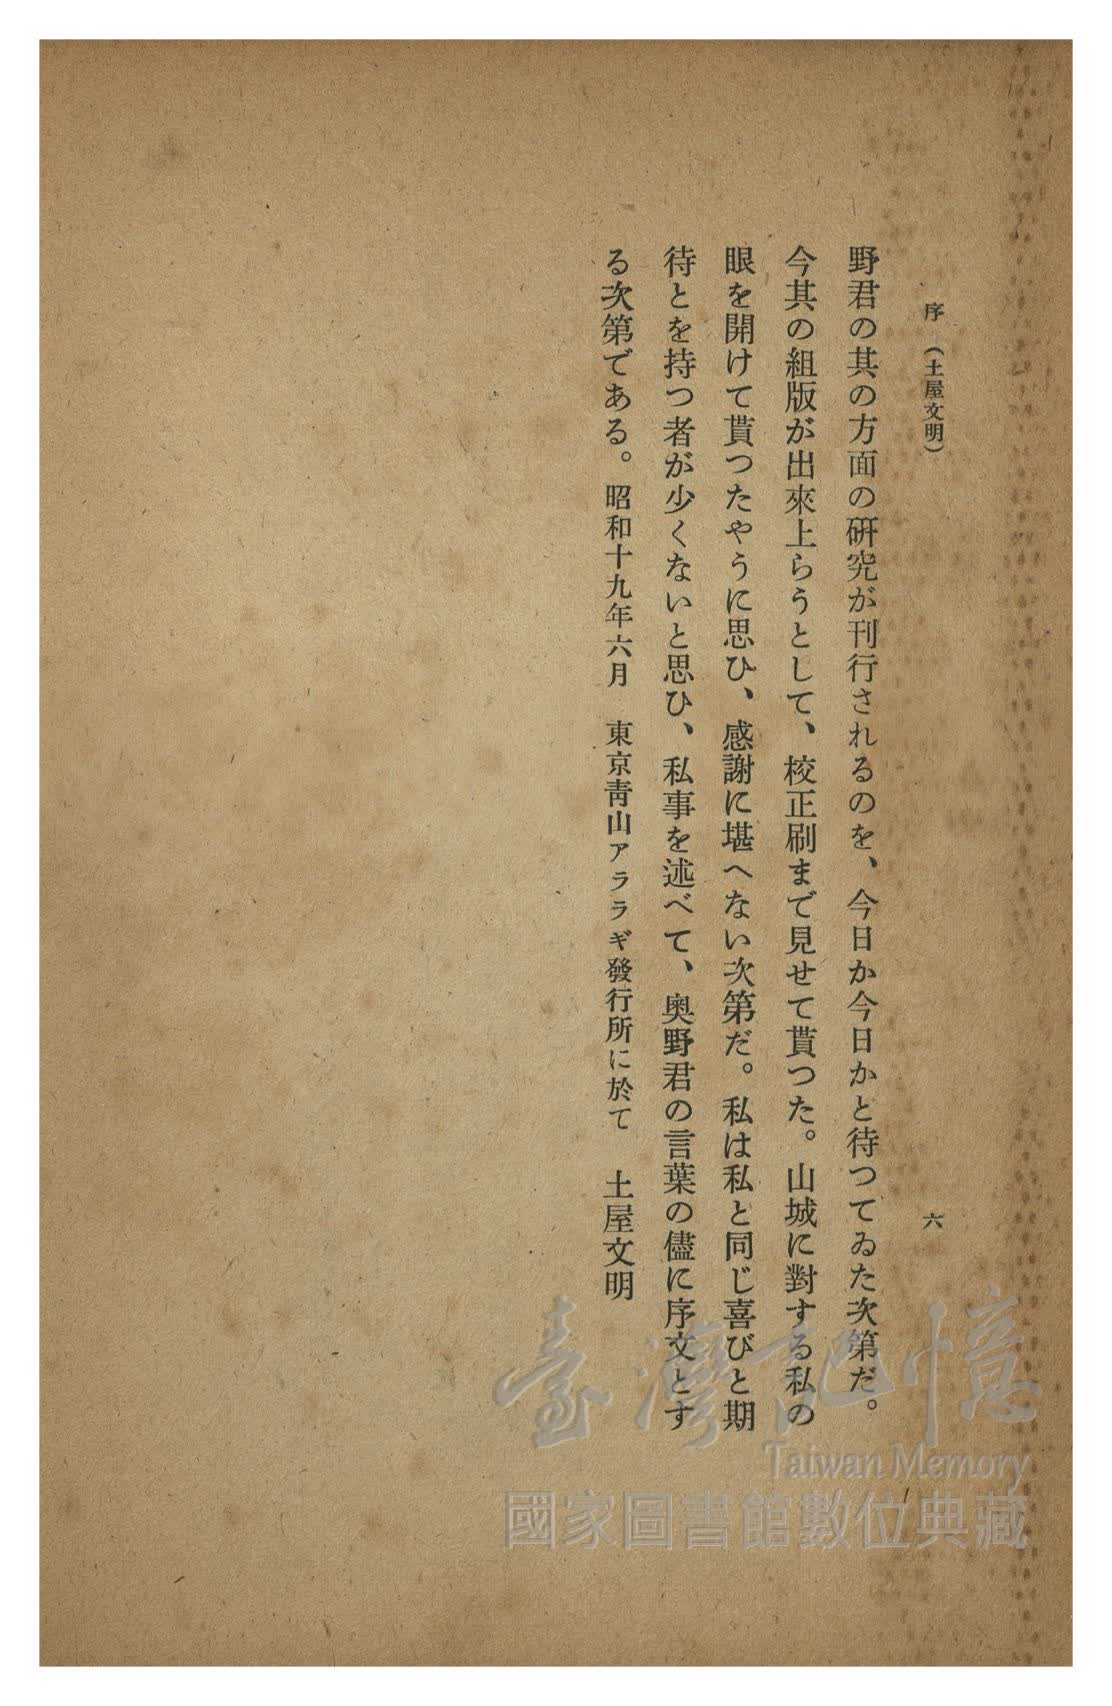 序 （土屋文明）
六
野君の其の方面の研究が刊行されるのを、今日か今日かと待つてゐた次第だ。
今其の組版が出來上らうとして、校正刷まで見せて貰つた。山城に對する私の
眼を開けて貰つたやうに思ひ、感謝に堪へない次第だ。私は私と同じ喜びと期
待とを持つ者が少くないと思ひ、私事を述べて、奧野君の言葉の儘に序文とす
る次第である。昭和十九年六月　東京靑山アララギ發行所に於て　土屋文明
臺灣記憶
Taiwan Memory
國家圖書館數位典藏